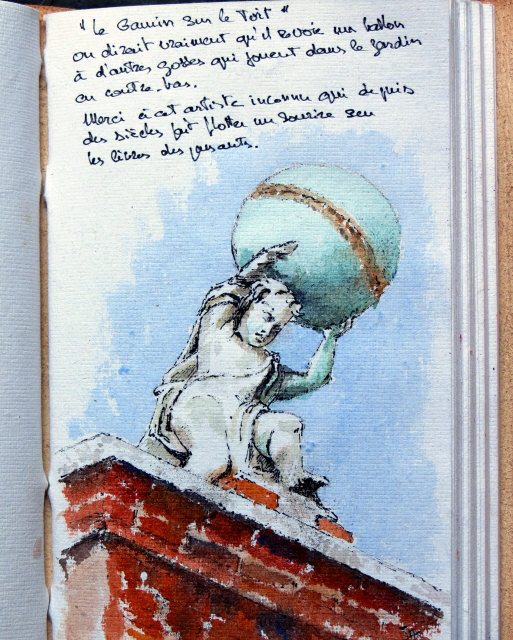 "Le Gamin sur le Toit"
on dirait vraiment qu'il renvoie un ballon
à d'autres gosses qui jouent dans le jardin
en contre-bas.
Merci à cet artiste inconnu qui depuis
des siècles fait flotter un sourire sur
les lèvres des passants.